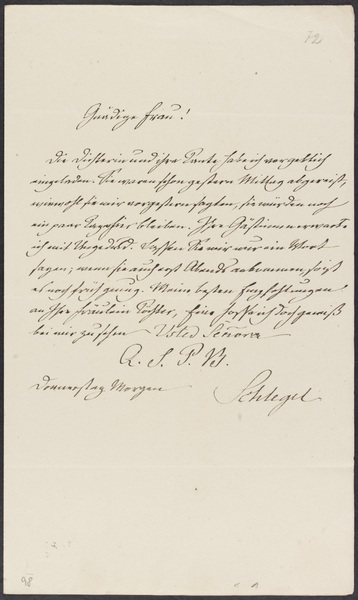 72
Gnädige Frau!
Die Dichterin und ihre Tante habe ich vergeblich
eingeladen. Sie waren schon gestern Mittag abgereist,
wiewohl sie mir vorgestern sagten, sie würden noch
ein paar Tage hier bleiben. Ihre Gästinnen erwarte
ich mit Ungeduld. Lassen Sie mir nur ein Wort
sagen; wenn sie auch erst Abends ankommen, so ist
es noch früh genug. Meine besten Empfehlungen
an Ihre Fräulein Tochter, Sie hoffe ich doch gewiß
bei mir zu sehen
Q. S. P. B.
Donnerstag Morgen Schlegel
98